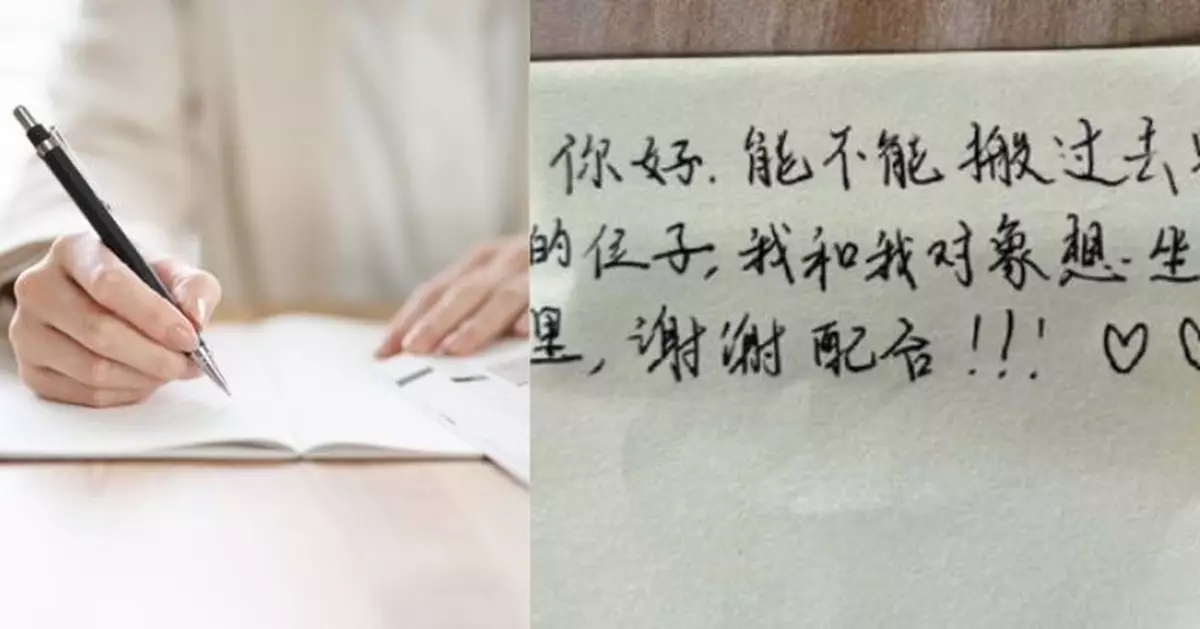 你好.能不能搬过去
的位子,我和我对象想坐
里,谢谢配合!!!♡♡